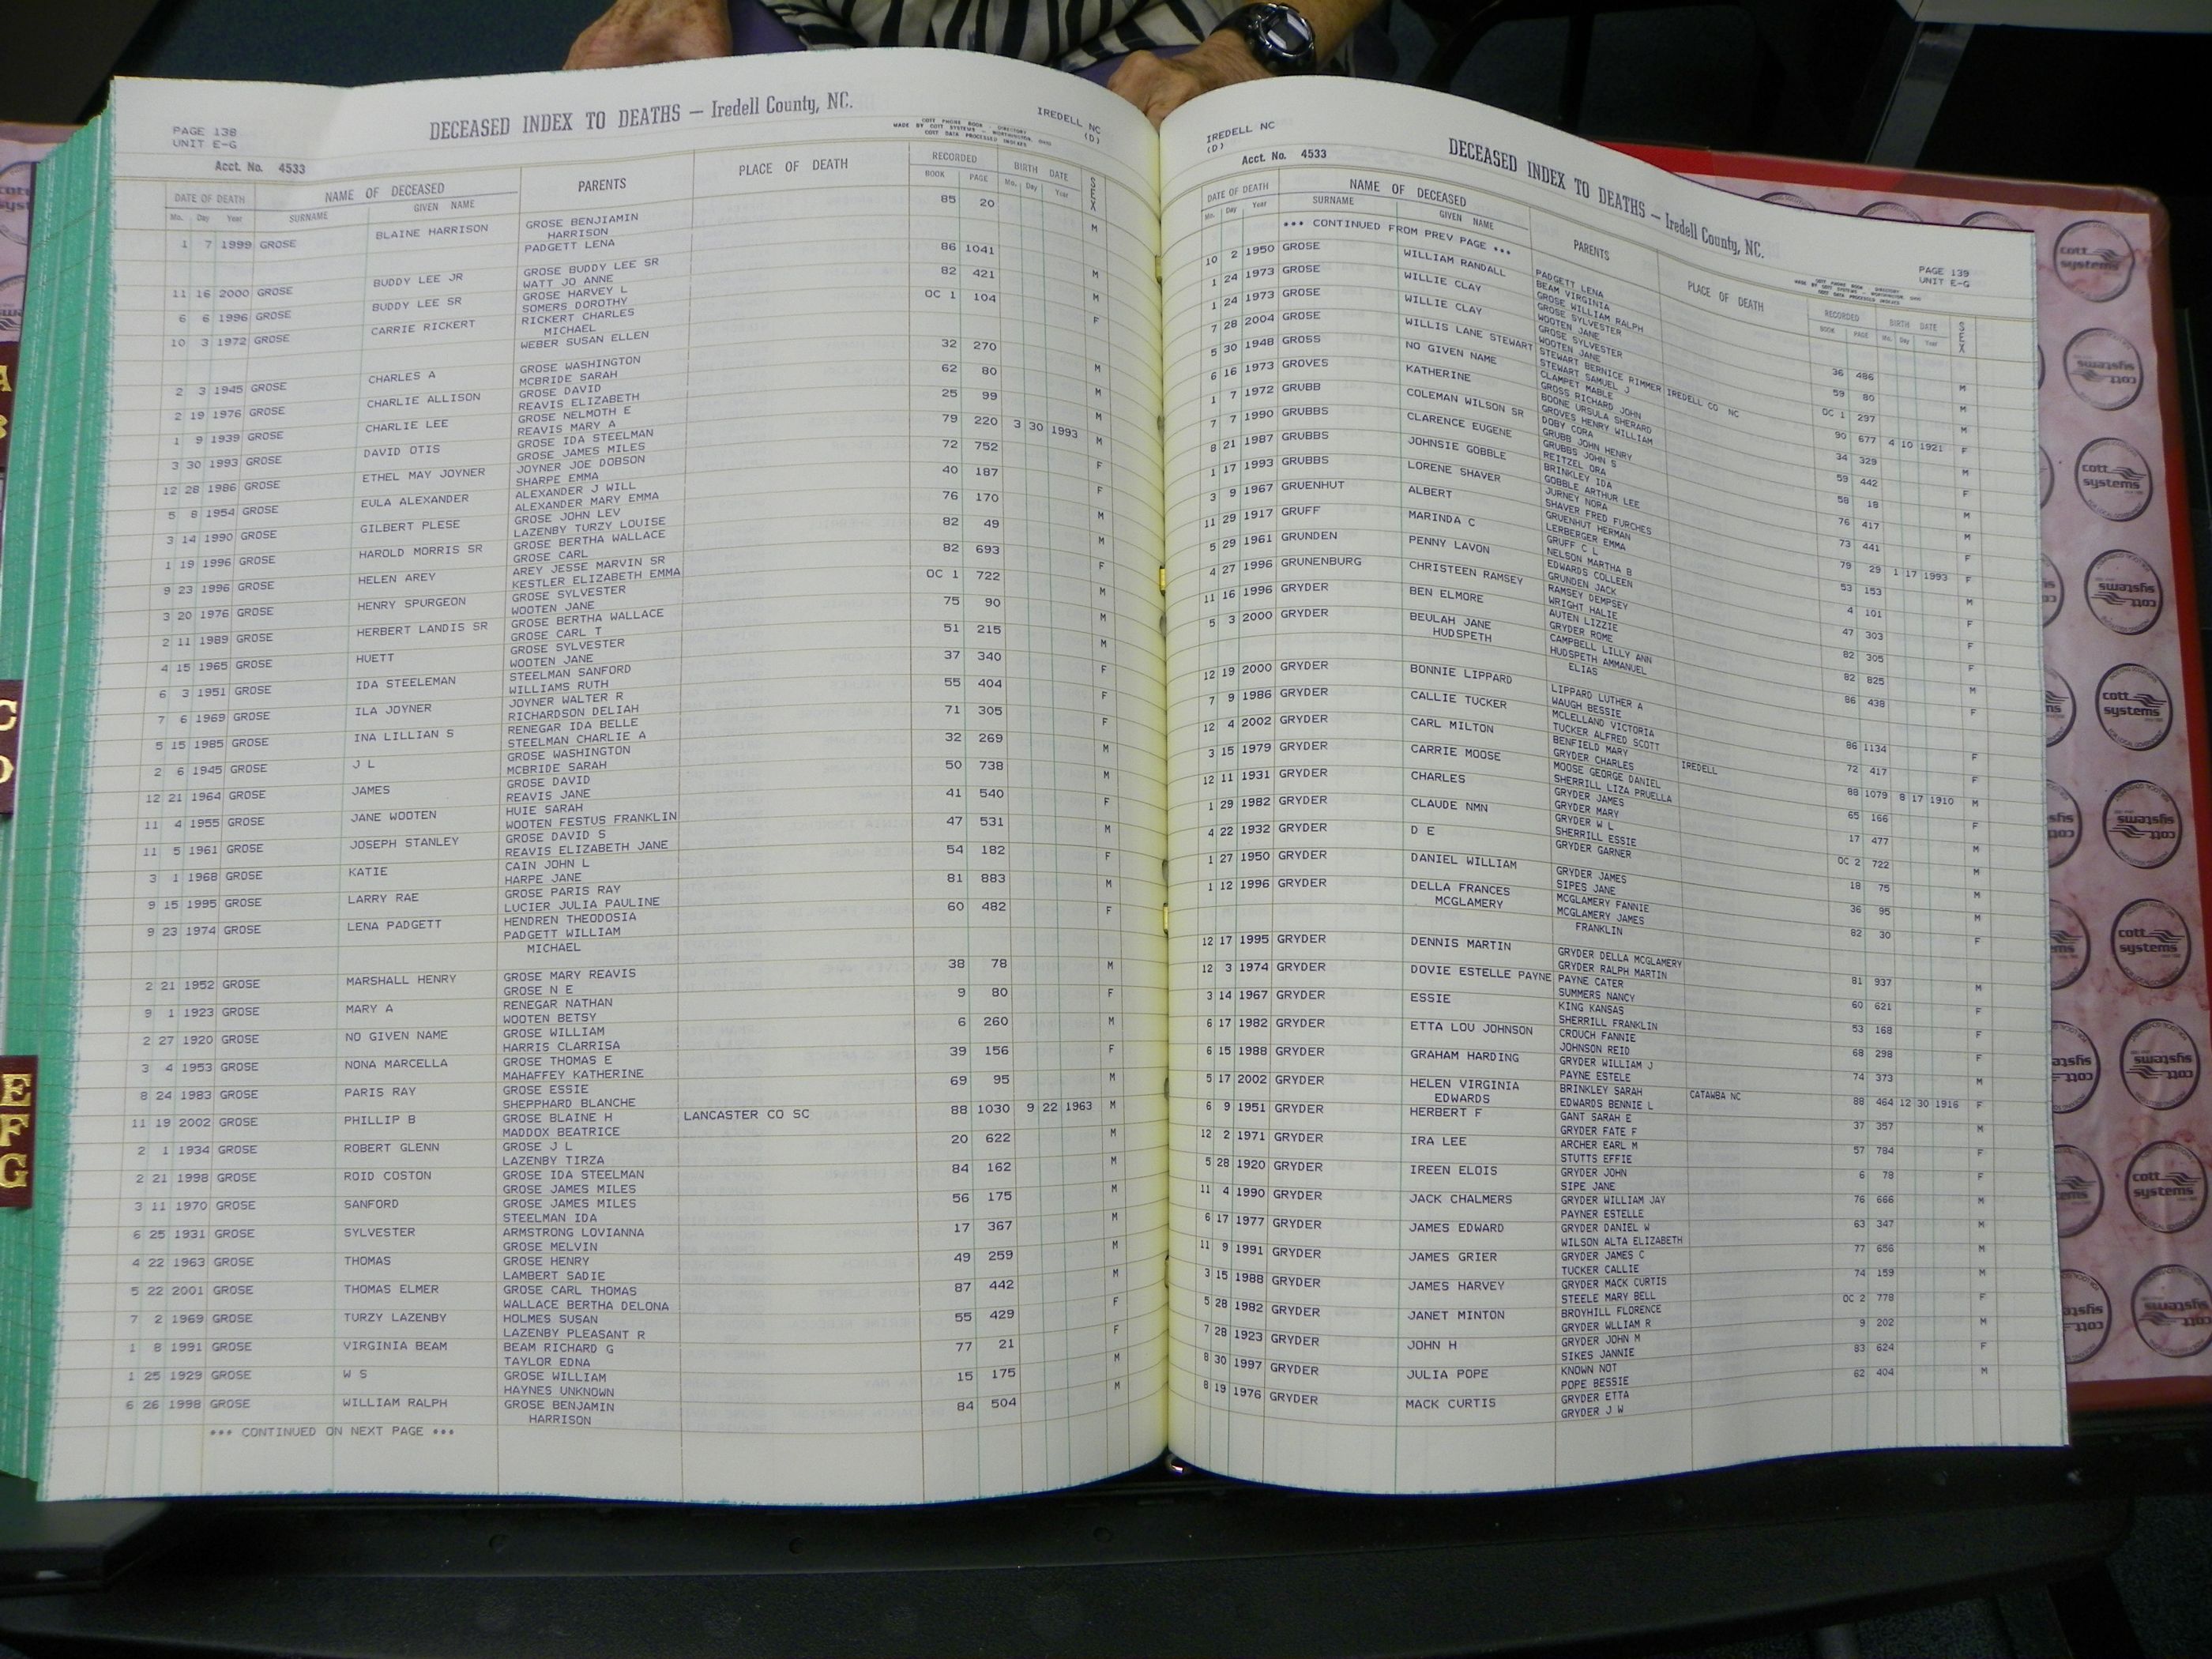 PAGE 138
UNIT E-G
DECEASED INDEX TO DEATHS — Iredell County, NC.
COTT PHONE BOOK - DIRECTORY
MADE BY COTT SYSTEMS - WORTHINGTON, OHIO
COTT DATA PROCESSED INDEXES
IREDELL NC
(D)
Acct. No. 4533
DATE OF DEATH NAME OF DECEASED PARENTS PLACE OF DEATH RECORDED BIRTH DATE SEX
Mo. Day Year SURNAME GIVEN NAME BOOK PAGE Mo. Day Year
1 7 1999 GROSE BLAINE HARRISON GROSE BENJIAMIN 85 20 M
HARRISON
PADGETT LENA
11 16 2000 GROSE BUDDY LEE JR GROSE BUDDY LEE SR 86 1041 M
WATT JO ANNE
6 6 1996 GROSE BUDDY LEE SR GROSE HARVEY L 82 421 M
SOMERS DOROTHY
10 3 1972 GROSE CARRIE RICKERT RICKERT CHARLES OC 1 104 F
MICHAEL
WEBER SUSAN ELLEN
2 3 1945 GROSE CHARLES A GROSE WASHINGTON 32 270 M
MCBRIDE SARAH
2 19 1976 GROSE CHARLIE ALLISON GROSE DAVID 62 80 M
REAVIS ELIZABETH
1 9 1939 GROSE CHARLIE LEE GROSE NELMOTH E 25 99 M
REAVIS MARY A
3 30 1993 GROSE DAVID OTIS GROSE IDA STEELMAN 79 220 3 30 1993 M
GROSE JAMES MILES
12 28 1986 GROSE ETHEL MAY JOYNER JOYNER JOE DOBSON 72 752 F
SHARPE EMMA
5 8 1954 GROSE EULA ALEXANDER ALEXANDER J WILL 40 187 F
ALEXANDER MARY EMMA
3 14 1990 GROSE GILBERT PLESE GROSE JOHN LEV 76 170 M
LAZENBY TURZY LOUISE
1 19 1996 GROSE HAROLD MORRIS SR GROSE BERTHA WALLACE 82 49 M
GROSE CARL
9 23 1996 GROSE HELEN AREY AREY JESSE MARVIN SR 82 693 F
KESTLER ELIZABETH EMMA
3 20 1976 GROSE HENRY SPURGEON GROSE SYLVESTER OC 1 722 M
WOOTEN JANE
2 11 1989 GROSE HERBERT LANDIS SR GROSE BERTHA WALLACE 75 90 M
GROSE CARL T
4 15 1965 GROSE HUETT GROSE SYLVESTER 51 215 M
WOOTEN JANE
6 3 1951 GROSE IDA STEELEMAN STEELMAN SANFORD 37 340 F
WILLIAMS RUTH
7 6 1969 GROSE ILA JOYNER JOYNER WALTER R 55 404 F
RICHARDSON DELIAH
5 15 1985 GROSE INA LILLIAN S RENEGAR IDA BELLE 71 305 F
STEELMAN CHARLIE A
2 6 1945 GROSE J L GROSE WASHINGTON 32 269 M
MCBRIDE SARAH
12 21 1964 GROSE JAMES GROSE DAVID 50 738 M
REAVIS JANE
11 4 1955 GROSE JANE WOOTEN HUIE SARAH 41 540 F
WOOTEN FESTUS FRANKLIN
11 5 1961 GROSE JOSEPH STANLEY GROSE DAVID S 47 531 M
REAVIS ELIZABETH JANE
3 1 1968 GROSE KATIE CAIN JOHN L 54 182 F
HARPE JANE
9 15 1995 GROSE LARRY RAE GROSE PARIS RAY 81 883 M
LUCIER JULIA PAULINE
9 23 1974 GROSE LENA PADGETT HENDREN THEODOSIA 60 482 F
PADGETT WILLIAM
MICHAEL
2 21 1952 GROSE MARSHALL HENRY GROSE MARY REAVIS 38 78 M
GROSE N E
9 1 1923 GROSE MARY A RENEGAR NATHAN 9 80 F
WOOTEN BETSY
2 27 1920 GROSE NO GIVEN NAME GROSE WILLIAM 6 260 M
HARRIS CLARRISA
3 4 1953 GROSE NONA MARCELLA GROSE THOMAS E 39 156 F
MAHAFFEY KATHERINE
8 24 1983 GROSE PARIS RAY GROSE ESSIE 69 95 M
SHEPPHARD BLANCHE
11 19 2002 GROSE PHILLIP B GROSE BLAINE H LANCASTER CO SC 88 1030 9 22 1963 M
MADDOX BEATRICE
2 1 1934 GROSE ROBERT GLENN GROSE J L 20 622 M
LAZENBY TIRZA
2 21 1998 GROSE ROID COSTON GROSE IDA STEELMAN 84 162 M
GROSE JAMES MILES
3 11 1970 GROSE SANFORD GROSE JAMES MILES 56 175 M
STEELMAN IDA
6 25 1931 GROSE SYLVESTER ARMSTRONG LOVIANNA 17 367 M
GROSE MELVIN
4 22 1963 GROSE THOMAS GROSE HENRY 49 259 M
LAMBERT SADIE
5 22 2001 GROSE THOMAS ELMER GROSE CARL THOMAS 87 442 M
WALLACE BERTHA DELONA
7 2 1969 GROSE TURZY LAZENBY HOLMES SUSAN 55 429 F
LAZENBY PLEASANT R
1 8 1991 GROSE VIRGINIA BEAM BEAM RICHARD G 77 21 F
TAYLOR EDNA
1 25 1929 GROSE W S GROSE WILLIAM 15 175 M
HAYNES UNKNOWN
6 26 1998 GROSE WILLIAM RALPH GROSE BENJAMIN 84 504 M
HARRISON
*** CONTINUED ON NEXT PAGE ***
IREDELL NC
(D)
DECEASED INDEX TO DEATHS — Iredell County, NC.
PAGE 139
UNIT E-G
Acct. No. 4533
DATE OF DEATH NAME OF DECEASED PARENTS PLACE OF DEATH RECORDED BIRTH DATE SEX
Mo. Day Year SURNAME GIVEN NAME BOOK PAGE Mo. Day Year
*** CONTINUED FROM PREV PAGE ***
PADGETT LENA
10 2 1950 GROSE WILLIAM RANDALL BEAM VIRGINIA 36 486 M
GROSE WILLIAM RALPH
1 24 1973 GROSE WILLIE CLAY GROSE SYLVESTER 59 80 M
WOOTEN JANE
1 24 1973 GROSE WILLIE CLAY GROSE SYLVESTER OC 1 297 M
WOOTEN JANE
7 28 2004 GROSE WILLIS LANE STEWART STEWART BERNICE RIMMER IREDELL CO NC 90 677 4 10 1921 F
STEWART SAMUEL J
5 30 1948 GROSS NO GIVEN NAME CLAMPET MABLE 34 329 M
GROSS RICHARD JOHN
6 16 1973 GROVES KATHERINE BOONE URSULA SHERARD 59 442 F
GROVES HENRY WILLIAM
1 7 1972 GRUBB COLEMAN WILSON SR DOBY CORA 58 18 M
GRUBB JOHN HENRY
7 7 1990 GRUBBS CLARENCE EUGENE GRUBBS JOHN S 76 417 M
REITZEL ORA
8 21 1987 GRUBBS JOHNSIE GOBBLE BRINKLEY IDA 73 441 F
GOBBLE ARTHUR LEE
1 17 1993 GRUBBS LORENE SHAVER JURNEY NORA 79 29 1 17 1993 F
SHAVER FRED FURCHES
3 9 1967 GRUENHUT ALBERT GRUENHUT HERMAN 53 153 M
LERBERGER EMMA
11 29 1917 GRUFF MARINDA C GRUFF C L 4 101 F
NELSON MARTHA B
5 29 1961 GRUNDEN PENNY LAVON EDWARDS COLLEEN 47 303 F
GRUNDEN JACK
4 27 1996 GRUNENBURG CHRISTEEN RAMSEY RAMSEY DEMPSEY 82 305 F
WRIGHT HALIE
11 16 1996 GRYDER BEN ELMORE AUTEN LIZZIE 82 825 M
GRYDER ROME
5 3 2000 GRYDER BEULAH JANE CAMPBELL LILLY ANN 86 438 F
HUDSPETH HUDSPETH AMMANUEL
ELIAS
12 19 2000 GRYDER BONNIE LIPPARD LIPPARD LUTHER A 86 1134 F
WAUGH BESSIE
7 9 1986 GRYDER CALLIE TUCKER MCLELLAND VICTORIA 72 417 F
TUCKER ALFRED SCOTT
12 4 2002 GRYDER CARL MILTON BENFIELD MARY IREDELL 88 1079 8 17 1910 M
GRYDER CHARLES
3 15 1979 GRYDER CARRIE MOOSE MOOSE GEORGE DANIEL 65 166 F
SHERRILL LIZA PRUELLA
12 11 1931 GRYDER CHARLES GRYDER JAMES 17 477 M
GRYDER MARY
1 29 1982 GRYDER CLAUDE NMN GRYDER W L OC 2 722 M
SHERRILL ESSIE
4 22 1932 GRYDER D E GRYDER GARNER 18 75 M
1 27 1950 GRYDER DANIEL WILLIAM GRYDER JAMES 36 95
SIPES JANE
1 12 1996 GRYDER DELLA FRANCES MCGLAMERY FANNIE 82 30 F
MCGLAMERY MCGLAMERY JAMES
FRANKLIN
12 17 1995 GRYDER DENNIS MARTIN GRYDER DELLA MCGLAMERY 81 937 M
GRYDER RALPH MARTIN
12 3 1974 GRYDER DOVIE ESTELLE PAYNE PAYNE CATER 60 621 F
SUMMERS NANCY
3 14 1967 GRYDER ESSIE KING KANSAS 53 168 F
SHERRILL FRANKLIN
6 17 1982 GRYDER ETTA LOU JOHNSON CROUCH FANNIE 68 298 F
JOHNSON REID
6 15 1988 GRYDER GRAHAM HARDING GRYDER WILLIAM J 74 373 M
PAYNE ESTELE
5 17 2002 GRYDER HELEN VIRGINIA BRINKLEY SARAH CATAWBA NC 88 464 12 30 1916 F
EDWARDS EDWARDS BENNIE L
6 9 1951 GRYDER HERBERT F GANT SARAH E 37 357 M
GRYDER FATE F
12 2 1971 GRYDER IRA LEE ARCHER EARL M 57 784 F
STUTTS EFFIE
5 28 1920 GRYDER IREEN ELOIS GRYDER JOHN 6 78 F
SIPE JANE
11 4 1990 GRYDER JACK CHALMERS GRYDER WILLIAM JAY 76 666 M
PAYNER ESTELLE
6 17 1977 GRYDER JAMES EDWARD GRYDER DANIEL W 63 347 M
WILSON ALTA ELIZABETH
11 9 1991 GRYDER JAMES GRIER GRYDER JAMES C 77 656 M
TUCKER CALLIE
3 15 1988 GRYDER JAMES HARVEY GRYDER MACK CURTIS 74 159 M
STEELE MARY BELL
5 28 1982 GRYDER JANET MINTON BROYHILL FLORENCE OC 2 778 F
GRYDER WLLIAM R
7 28 1923 GRYDER JOHN H GRYDER JOHN M 9 202 M
SIKES JANNIE
8 30 1997 GRYDER JULIA POPE KNOWN NOT 83 624 F
POPE BESSIE
8 19 1976 GRYDER MACK CURTIS GRYDER ETTA 62 404 M
GRYDER J W
cott systems
C
D
E
F
G